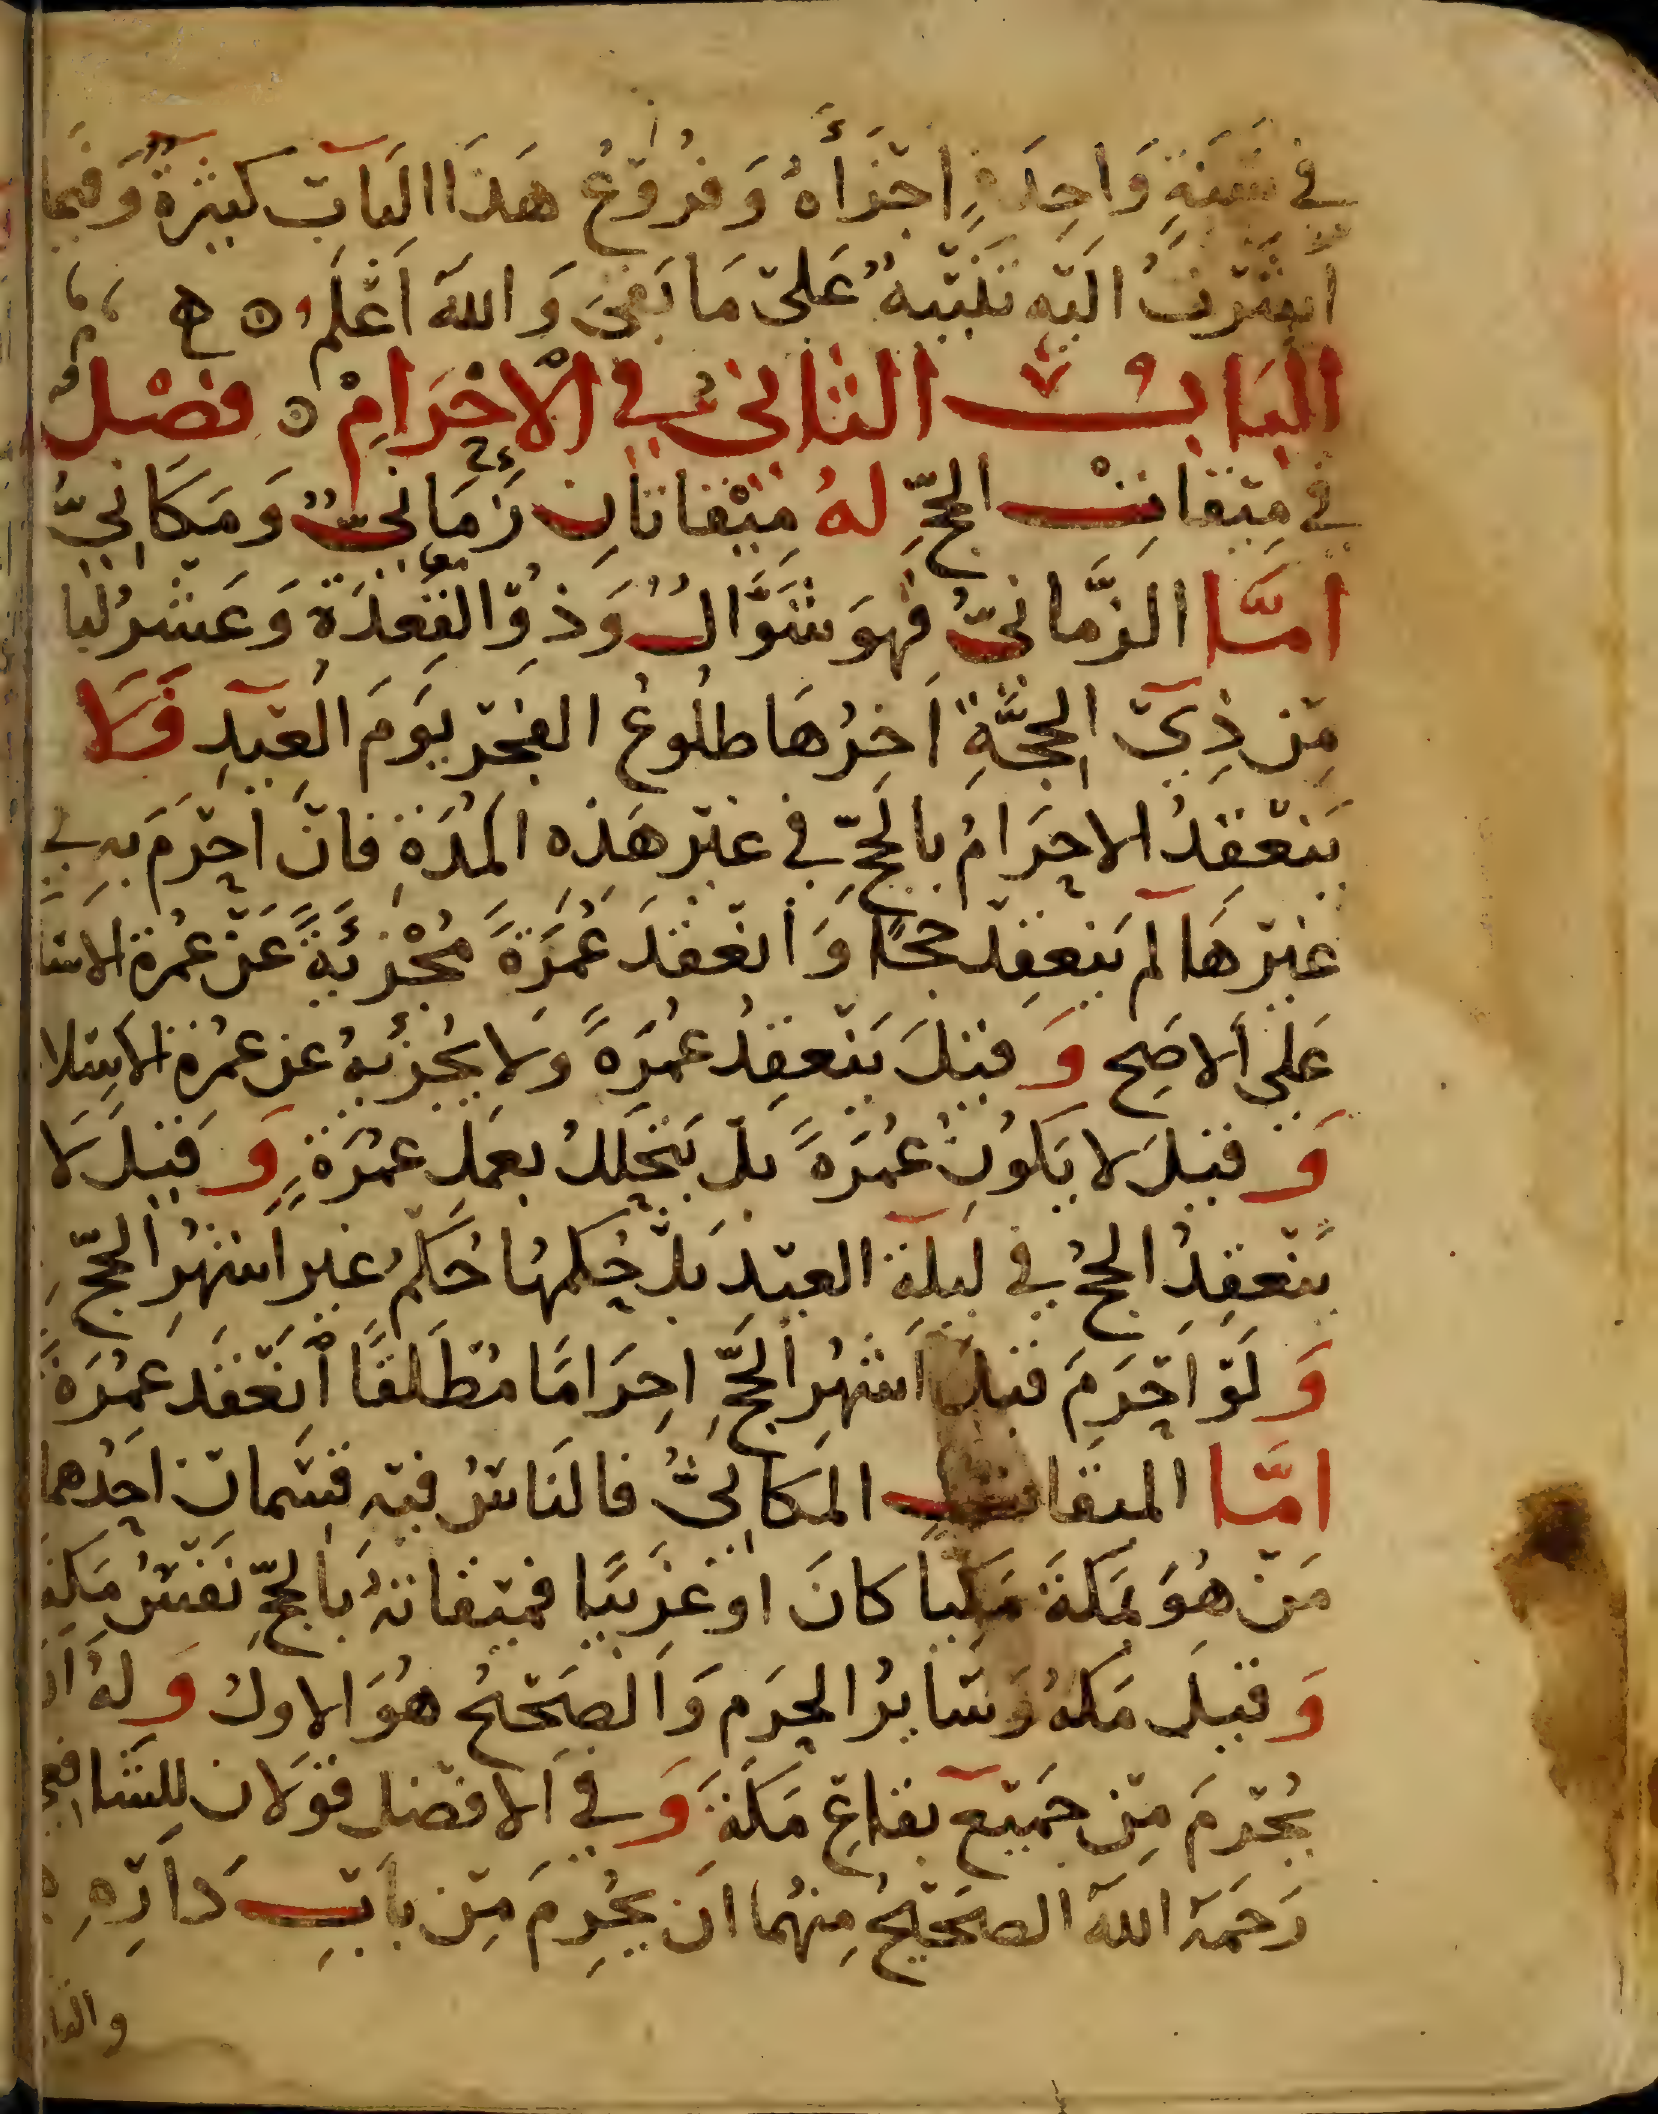 في سَنَةٍ وَاحِدَةٍ اجْزَأهُ وَفُرُوْعُ هَذَا البَابْ كَثِيْرَةٌ وَفيمَا
اشَرْتُ الَيْهِ تَنْبِيْهٌ عَلَى مَا بَقِيَ وَاللهُ اَعْلَمُ ه
البَابُ الثَانيْ في الْاحْرَامْ ه فَصْلٌ
في مِيْقَاتْ الحَجِّ لهُ مِيْقَاتَانِ زَمَانيٌّ وَمَكَانيٌّ
امَّا الزَّمانيُّ فهوَ شَوَّالُ وَذوْ القِعْدَةِ وَعَشرُ ليا
مِنْ ذِيْ الحِجَّةِ اَخِرُهَا طلُوعُ الفجْر يَوْمَ العِيْدِ فَلَا
يَنْعَقِدُ الاحرَامُ بالحَجِّ في غيْرِ هَذه المُدَةِ فانْ احْرَمَ بهِ في
غيْرِهَا لمْ يَنْعقِدْ حجًا وَانْعَقَدَ عُمْرَةً مُجْزِئَةً عَنْ عُمرة الاسْلا
عَلى الاصَح وَقيْلَ يَنْعقِدُ عُمْرَةً وَلا يُجْزئهُ عن عُمْرَة الاسلا
وَقيْلَ لا يَكُونُ عُمْرَةً بلْ يَتَحَللُ بعَمَلِ عمُرَةٍ وَقيْلَ لَا
يَنْعَقِدُ الحجُ في ليلَة العيْد بلْ حُكمهَا حُكْمُ غيرِ اشهُرِ الحَجِّ
وَلَوْ احْرَمَ قبْلَ اَشهُرِ الحَجِّ احِرَامًا مُطْلَقًا انْعَقَدَ عُمْرَةً
امَّا الميْقَات المَكَانيُّ فالنَاسُ فيْهِ قسْمان احَدُهما
مَنْ هُوَ بمَكةَ مَكيًا كانَ او غرِيْبًا فميْقاتهُ بالحَجِّ نَفْسُ مَكة
وَقيْلَ مَكةُ وَسَايرُ الحَرَمِ وَالصَحيْحُ هُوَ الاولُ وَلهُ ان
يُحْرِمَ مِنْ جَميْعِ بقاعِ مَكةَ وَفي الافضَلِ قوْلَان للشافعي
رَحمَهُ اللهُ الصَحيْحُ مِنهُما اَنْ يُحْرِمَ مِنْ بَابِ دَارِهِ